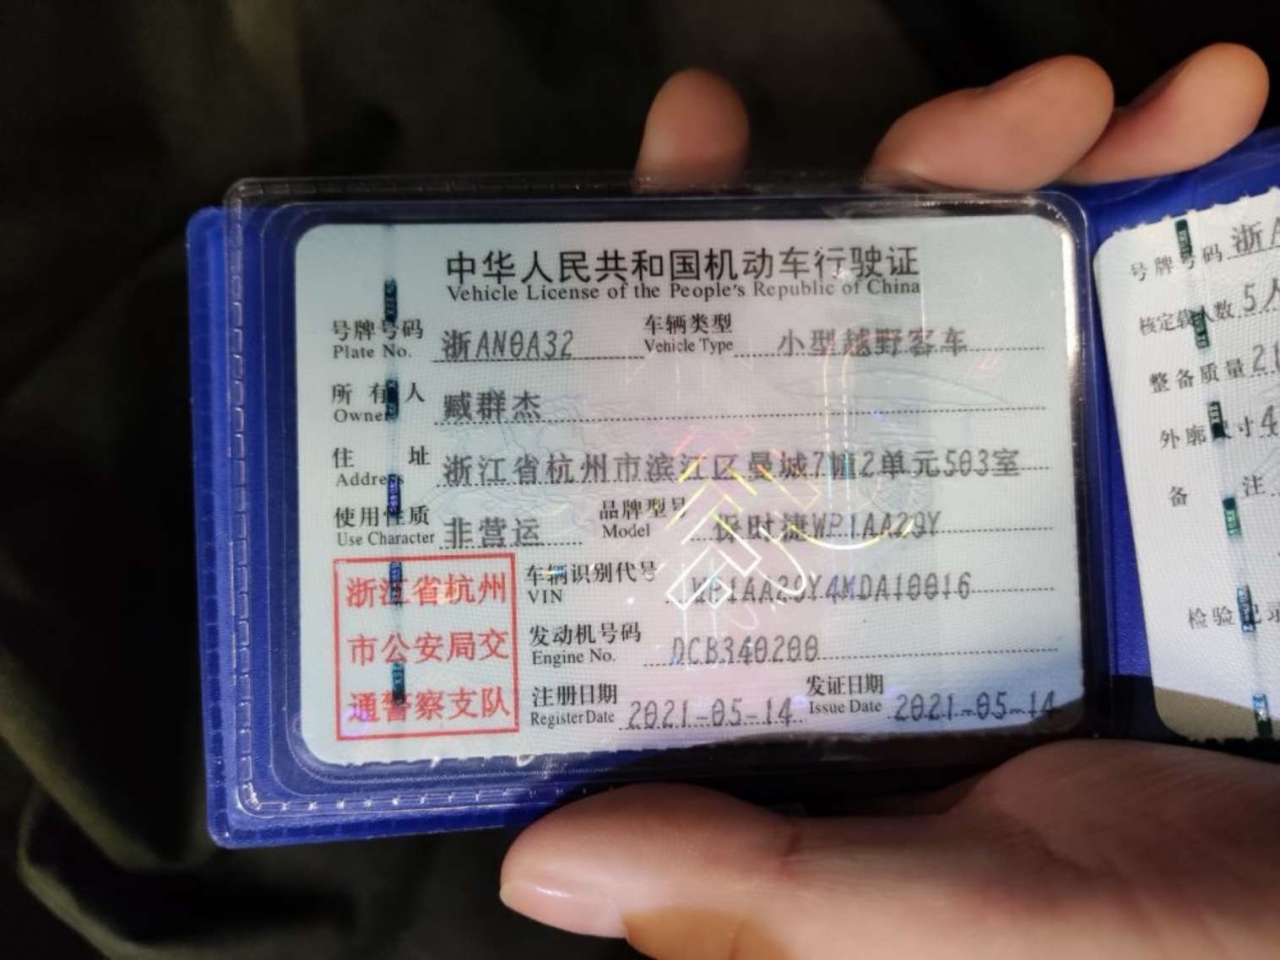 中华人民共和国机动车行驶证
Vehicle License of the People's Republic of China
号牌号码 浙AN0A32 车辆类型 小型越野客车
Plate No. Vehicle Type
所有人 臧群杰
Owner
住址 浙江省杭州市滨江区曼城7幢2单元503室
Address
使用性质 非营运 品牌型号 保时捷WP1AA29Y
Use Character Model
浙江省杭州
市公安局交
通警察支队
车辆识别代号 WP1AA29Y4MDA10016
VIN
发动机号码 DCB340200
Engine No.
注册日期 2021-05-14 发证日期 2021-05-14
Register Date Issue Date
号牌号码 浙A
核定载人数 5人
整备质量
外廓尺寸 4
备注
检验记录